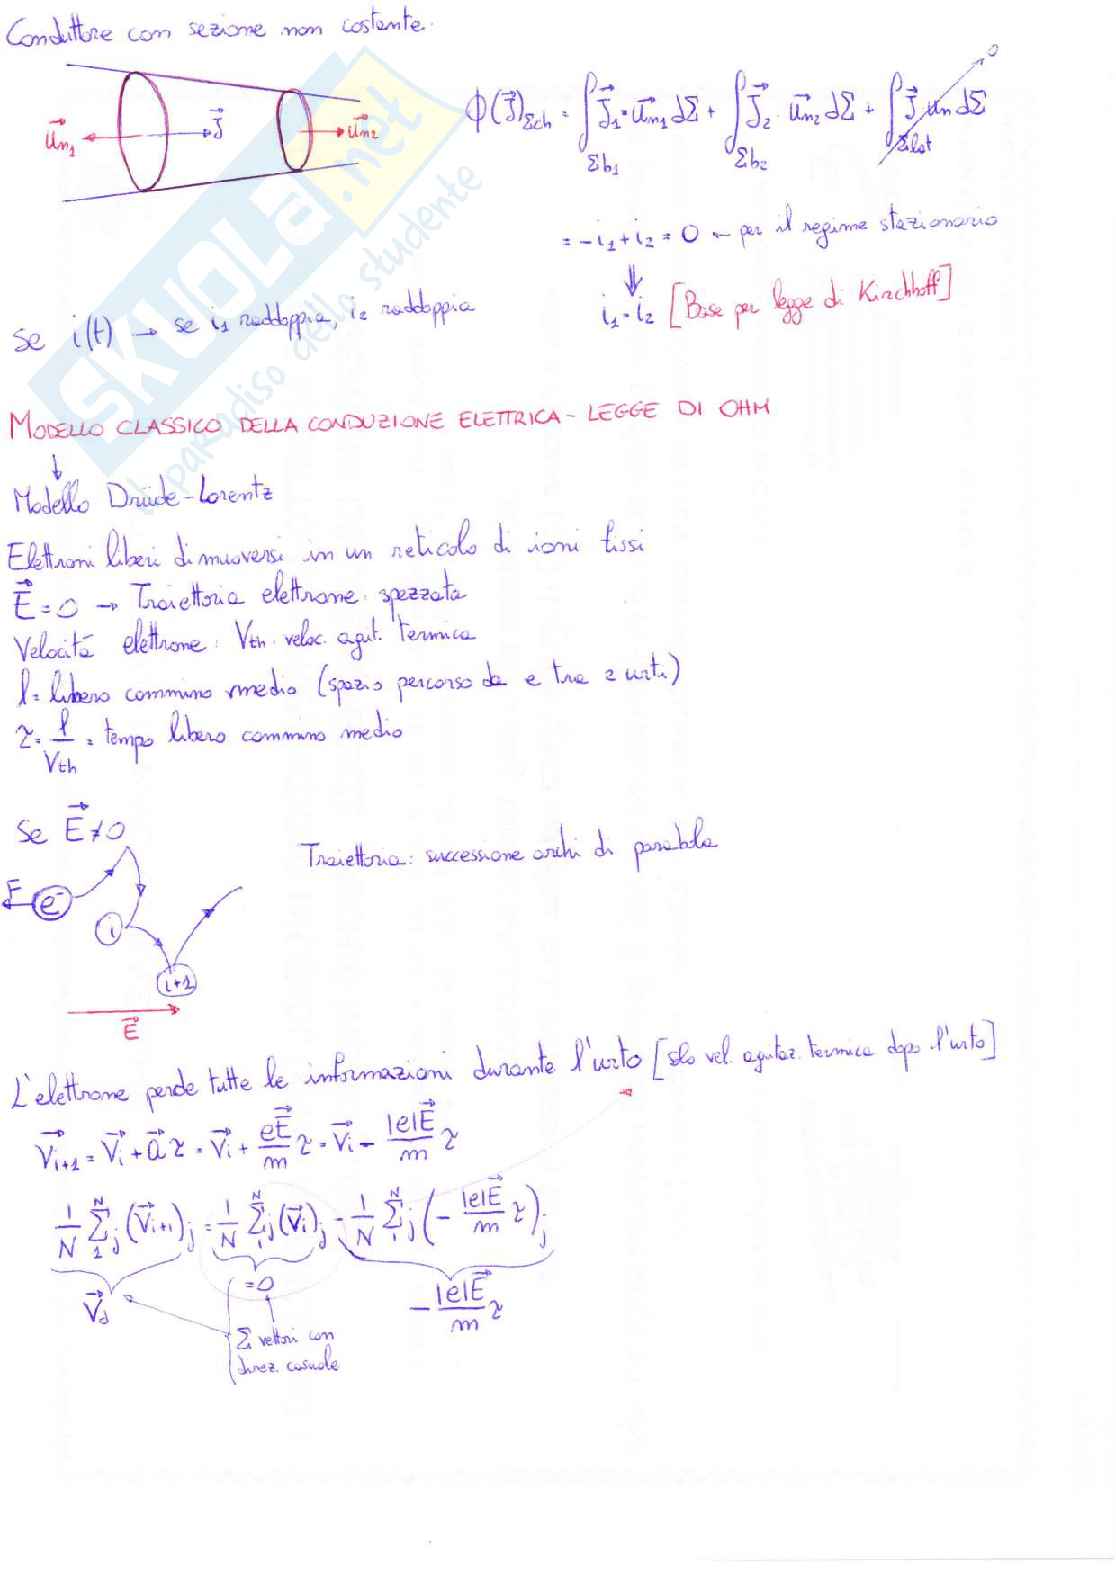 Conduttore con sezione non costante.
u⃗n1 J⃗ u⃗n2
Φ(J⃗)Σch = ∫Σb1 J⃗1 · u⃗n1 dΣ + ∫Σb2 J⃗2 · u⃗n2 dΣ + ∫Σlat J⃗ un dΣ → 0
= -i1 + i2 = 0 ← per il regime stazionario
⇓
i1 = i2 [Base per legge di Kirchhoff]
Se i(t) → se i1 raddoppia, i2 raddoppia
SKUOLA.net
il paradiso dello studente
MODELLO CLASSICO DELLA CONDUZIONE ELETTRICA - LEGGE DI OHM
↓
Modello Drüde-Lorentz
Elettroni liberi di muoversi in un reticolo di ioni fissi
E⃗ = 0 → Traiettoria elettrone: spezzata
Velocità elettrone: Vth: veloc. agit. termica
l = libero cammino medio (spazio percorso da e tra 2 urti)
τ = l/Vth = tempo libero cammino medio
Se E⃗ ≠ 0
Traiettoria: successione archi di parabola
F e⁻
i
i+1
E⃗
L'elettrone perde tutte le informazioni durante l'urto [solo vel. agitaz. termica dopo l'urto]
V⃗i+1 = V⃗i + a⃗ τ = V⃗i + eE⃗/m τ = V⃗i - |e|E⃗/m τ
1/N Σ1^N j (V⃗i+1)j = 1/N Σ1^N j (V⃗i)j - 1/N Σ1^N j (- |e|E⃗/m τ)j
V⃗d =0 - |e|E⃗/m τ
Σ vettori con
direz. casuale